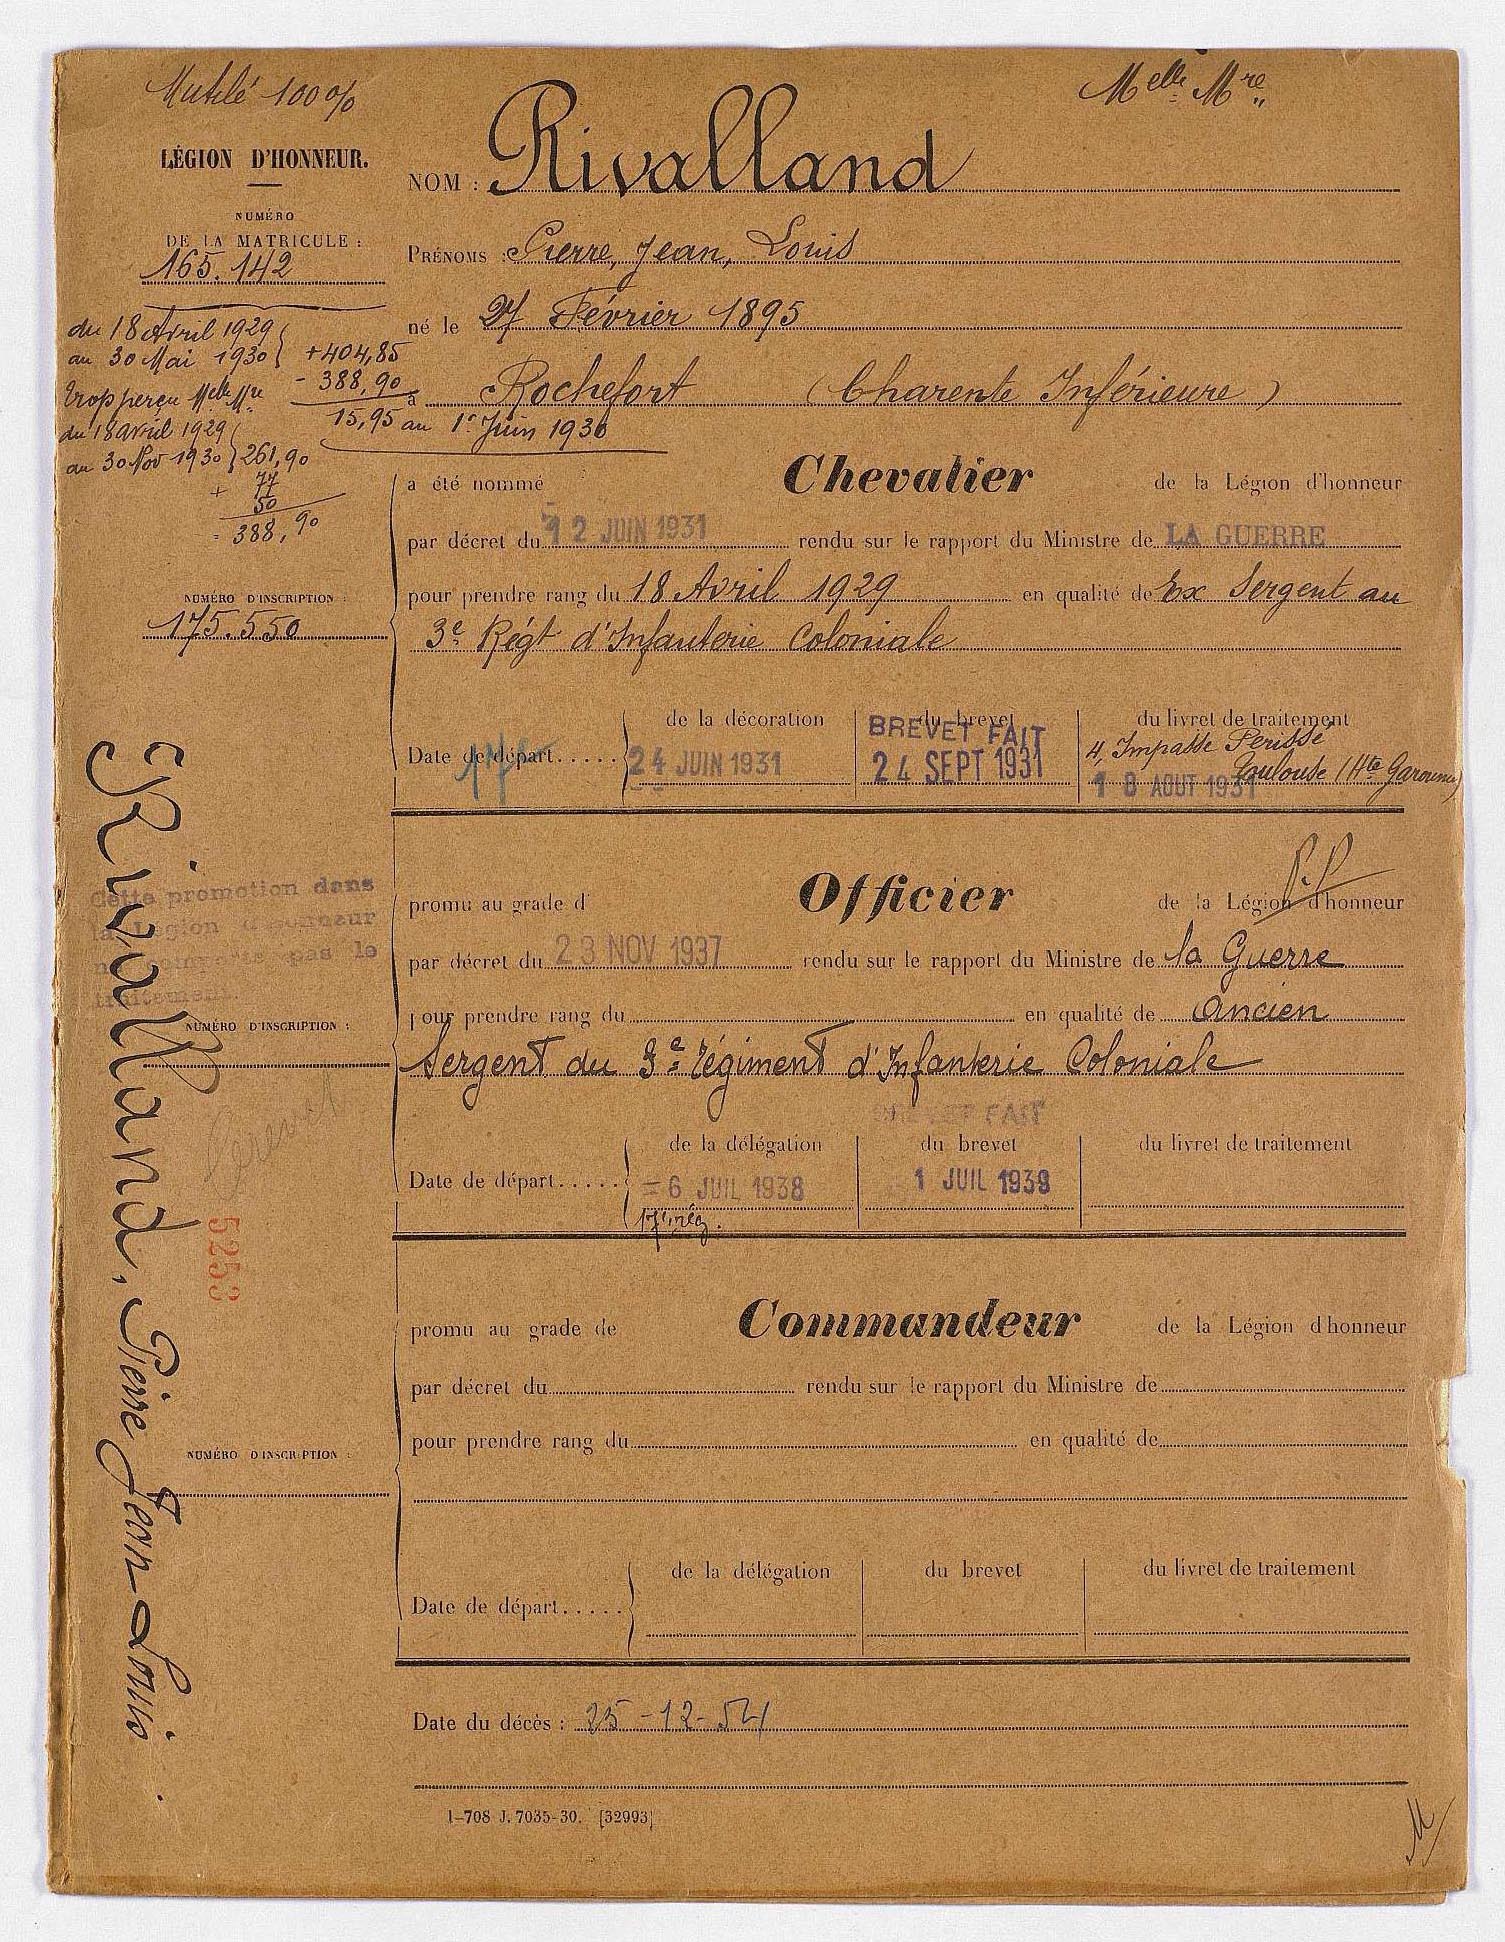 Mutilé 100%
Melle Mre
LÉGION D'HONNEUR.
NUMÉRO
DE LA MATRICULE :
165.142
NOM : Rivalland
PRÉNOMS : Pierre, Jean, Louis
né le 27 Février 1895
à Rochefort (Charente Inférieure)
du 18 Avril 1929
au 30 Mai 1930 } +404,85
- 388,90
Trop perçu Melle Mre
15,95 au 1er Juin 1930
du 18 avril 1929
au 30 Nov 1930 } 261,90
+ 77
50
= 388,90
a été nommé Chevalier de la Légion d'honneur
par décret du 12 JUIN 1931 rendu sur le rapport du Ministre de LA GUERRE
pour prendre rang du 18 Avril 1929 en qualité de Ex Sergent au
3e Régt d'Infanterie Coloniale
NUMÉRO D'INSCRIPTION :
175.550
de la décoration
du brevet
du livret de traitement
BREVET FAIT
4, Impasse Périssé
Toulouse (Hte Garonne)
Date de départ.....
24 JUIN 1931
24 SEPT 1931
18 AOUT 1931
Cette promotion dans
la Légion d'honneur
ne comporte pas le
traitement.
promu au grade d' Officier de la Légion d'honneur
par décret du 23 NOV 1937 rendu sur le rapport du Ministre de la Guerre
pour prendre rang du en qualité de Ancien
Sergent du 3e régiment d'Infanterie Coloniale
NUMÉRO D'INSCRIPTION :
BREVET FAIT
de la délégation
du brevet
du livret de traitement
Date de départ.....
=6 JUIL 1938
1 JUIL 1939
5253
Rivalland, Pierre Jean Louis.
promu au grade de Commandeur de la Légion d'honneur
par décret du rendu sur le rapport du Ministre de
pour prendre rang du en qualité de
NUMÉRO D'INSCRIPTION :
de la délégation
du brevet
du livret de traitement
Date de départ.....
Date du décès : 25-12-54
1-708 J. 7035-30. [32993]